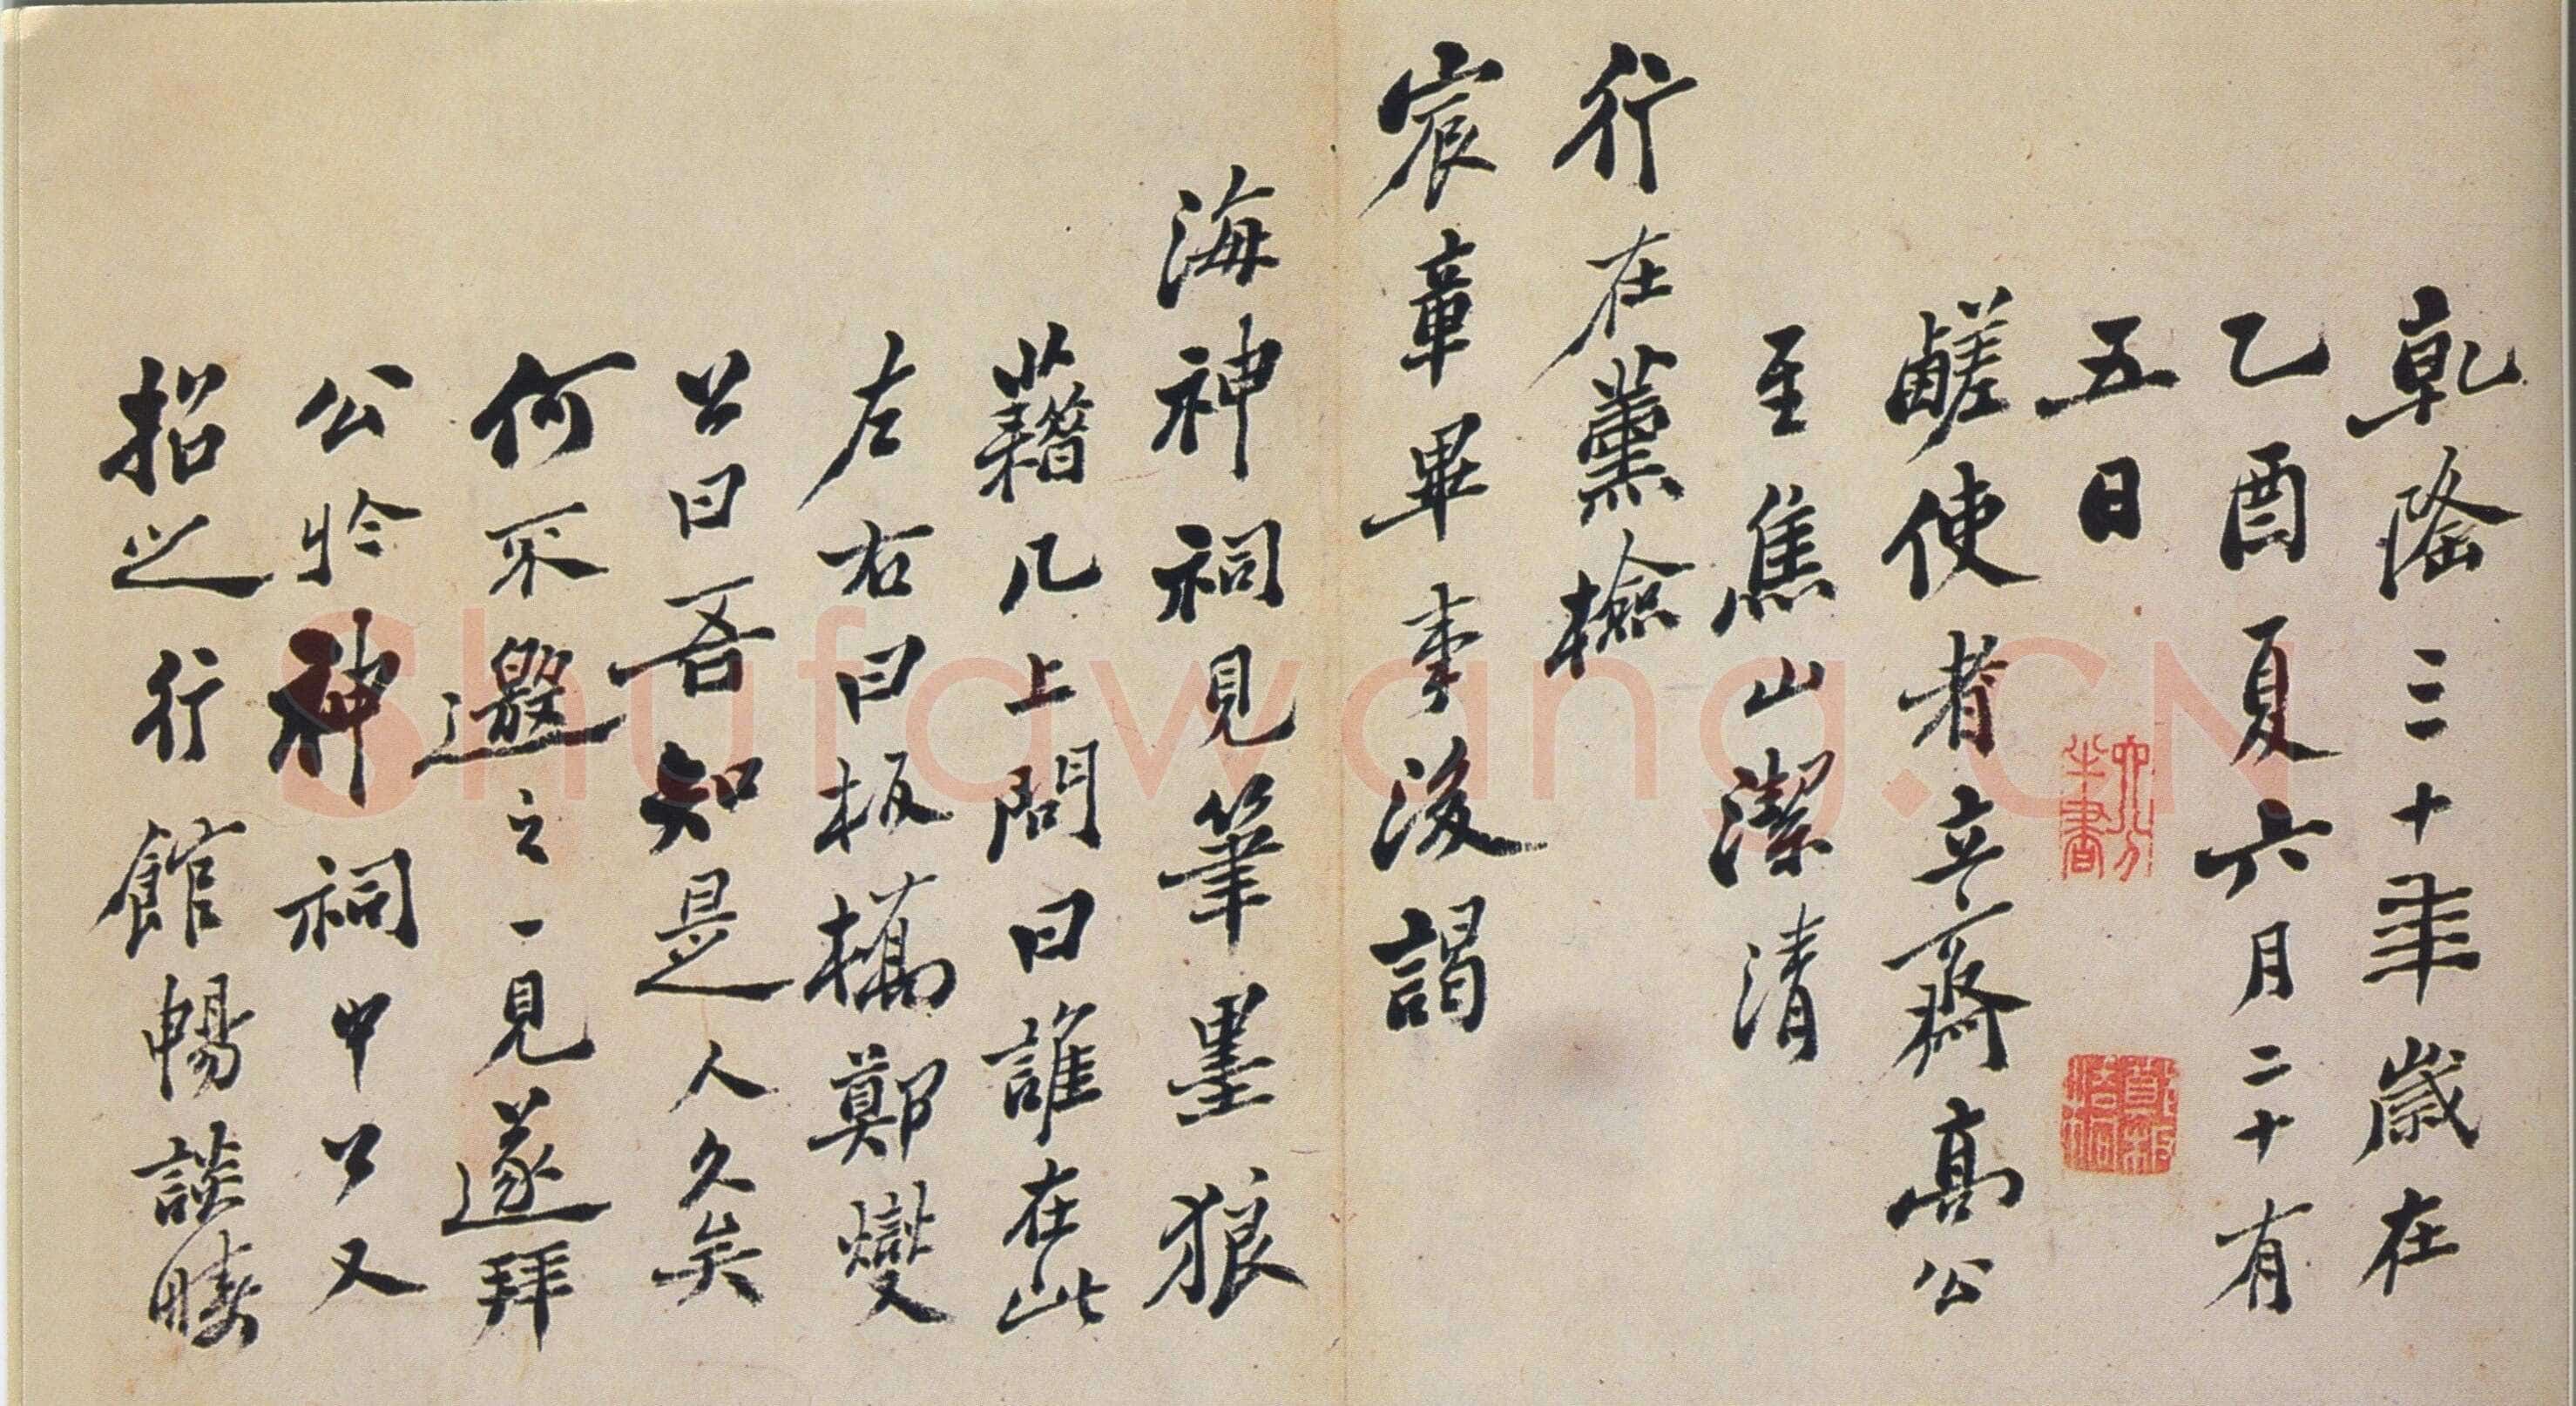 乾隆三十年歲在
乙酉夏六月二十有
五日
六分半書
鹺使者立齋高公
至焦山潔清
行在薰檢
宸章畢事後謁
海神祠見筆墨狼
藉几上問曰誰在此
左右曰板橋鄭燮
公曰吾知是人久矣
何不邀之一見遂拜
公於神祠中公又
招之行館暢談疇
Shufawang.CN